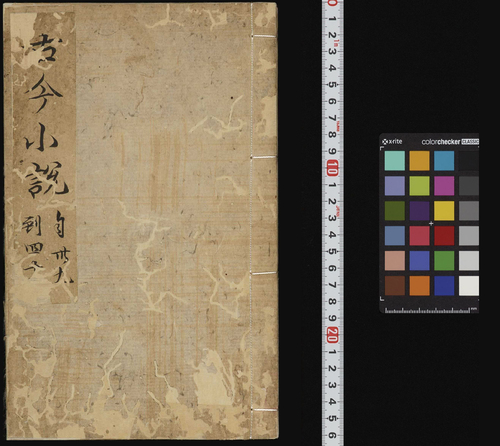 古今小說
自卅九
到四十
0
1
2
3
4
5
6
7
8
9
10
1
2
3
4
5
6
7
8
9
20
1
2
3
4
5
6
x-rite
colorchecker CLASSIC
mm